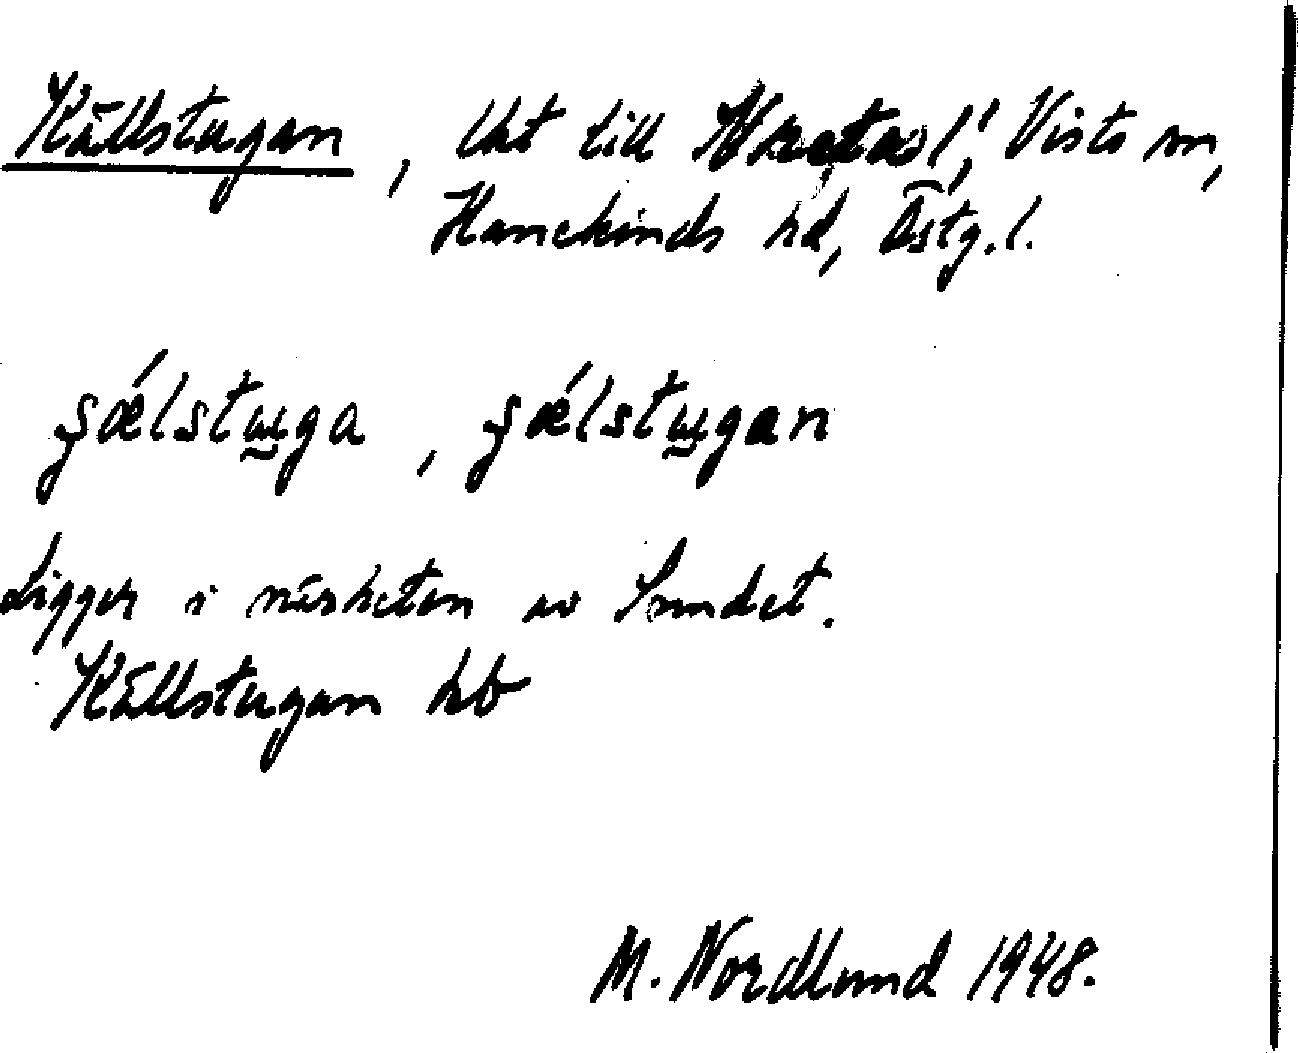 Källstugan, lht till Visto sn,
Hanekinds hd, Östg.l.
Ligger i närheten av Sundet.
Källstugan hb
M. Nordlund 1948.